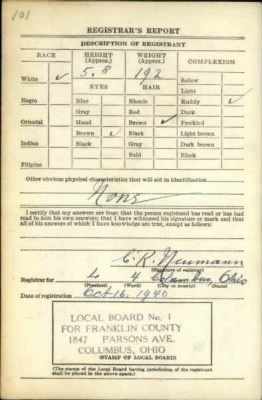 101
REGISTRAR'S REPORT
DESCRIPTION OF REGISTRANT
RACE HEIGHT (Approx.) WEIGHT (Approx.) COMPLEXION
White ✓ 5.8 192 Sallow
EYES HAIR Light
Negro Blue Blonde Ruddy ✓
Gray Red ✓ Dark
Oriental Hazel Brown Freckled
Brown ✓ Black Light brown
Indian Black Gray Dark brown
Bald Black
Filipino
Other obvious physical characteristics that will aid in identification
None
I certify that my answers are true; that the person registered has read or has had
read to him his own answers; that I have witnessed his signature or mark and that
all of his answers of which I have knowledge are true, except as follows:
C. R. Neumann
(Signature of registrar)
Registrar for L 4 Columbus, Ohio
(Precinct) (Ward) (City or county) (State)
Date of registration Oct 16, 1940
LOCAL BOARD No. 1
FOR FRANKLIN COUNTY
1847 PARSONS AVE.
COLUMBUS, OHIO
(STAMP OF LOCAL BOARD)
(The stamp of the Local Board having jurisdiction of the registrant
shall be placed in the above space.)